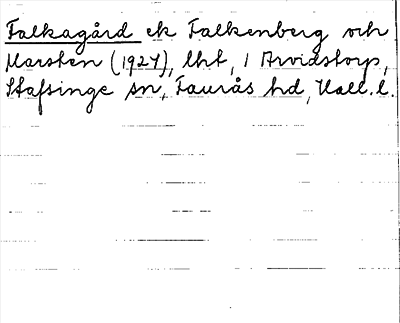 Falkagård ek Falkenberg och
Karsten (1927), lht, 1 Arvidstorp,
Stafsinge sn, Faurås hd, Hall. l.